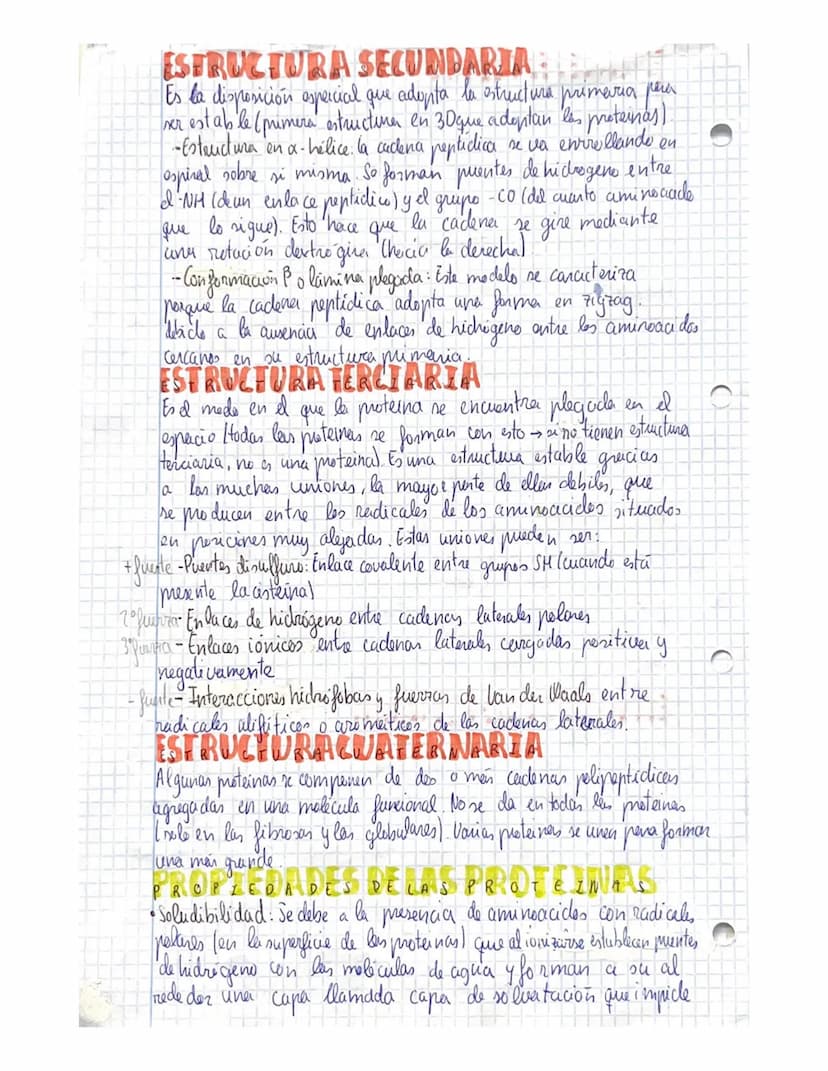 ESTRUCTURA SECUNDARIA
Es la disposición espeicial que adopta la estructura primaria para
ser estable (primera estructura en 3D que adoptan las proteínas)
-Estructura en α-hélice: la cadena peptídica se va enrrollando en
espiral sobre si misma. So forman puentes de hidrogeno entre
el -NH (de un enlace peptídico) y el grupo -CO (del cuarto aminoacido
que lo sigue). Esto hace que la cadena se gire mediante
una rotación dextrógira (hacia la derecha)
-Conformación β o lámina plegada: Este modelo se caracteriza
porque la cadena peptídica adopta una forma en zigzag.
debido a la ausencia de enlaces de hidrógeno entre los aminoacidos
cercanos en su estructura primaria.
ESTRUCTURA TERCIARIA
Es el modo en el que la proteína se encuentra plegada en el
espacio (todas las proteínas se forman con esto → si no tienen estructura
terciaria, no es una proteína). Es una estructura estable gracias
a las muchas uniones, la mayor parte de ellas debiles, que
se producen entre los radicales de los aminoacidos situados
en posiciones muy alejadas. Estas uniones pueden ser:
+ fuerte -Puentes disulfuro: Enlace covalente entre grupos SH (cuando está
presente la cisteína)
2º fuerza - Enlaces de hidrógeno entre cadenas laterales polares
3º fuerza - Enlaces iónicos entre cadenas laterales cargadas positiva y
negativamente
- fuerte - Interacciones hidrófobas y fuerzas de Van der Waals entre
radicales alifíticos o aromáticos de las cadenas laterales.
ESTRUCTURA CUATERNARIA
Algunas proteínas se componen de dos o más cadenas polipeptídicas
agregadas en una molécula funcional. No se da en todas las proteínas
(solo en las fibrosas y las globulares). Varias proteínas se unen para formar
una más grande.
PROPIEDADES DE LAS PROTEINAS
• Soludibilidad: Se debe a la presencia de aminoacidos con radicales
polares (en la superficie de las proteínas) que al ionizarse establecen puentes
de hidrógeno con las moléculas de agua y forman a su al
rededor una capa llamdda capa de solvatación que impide